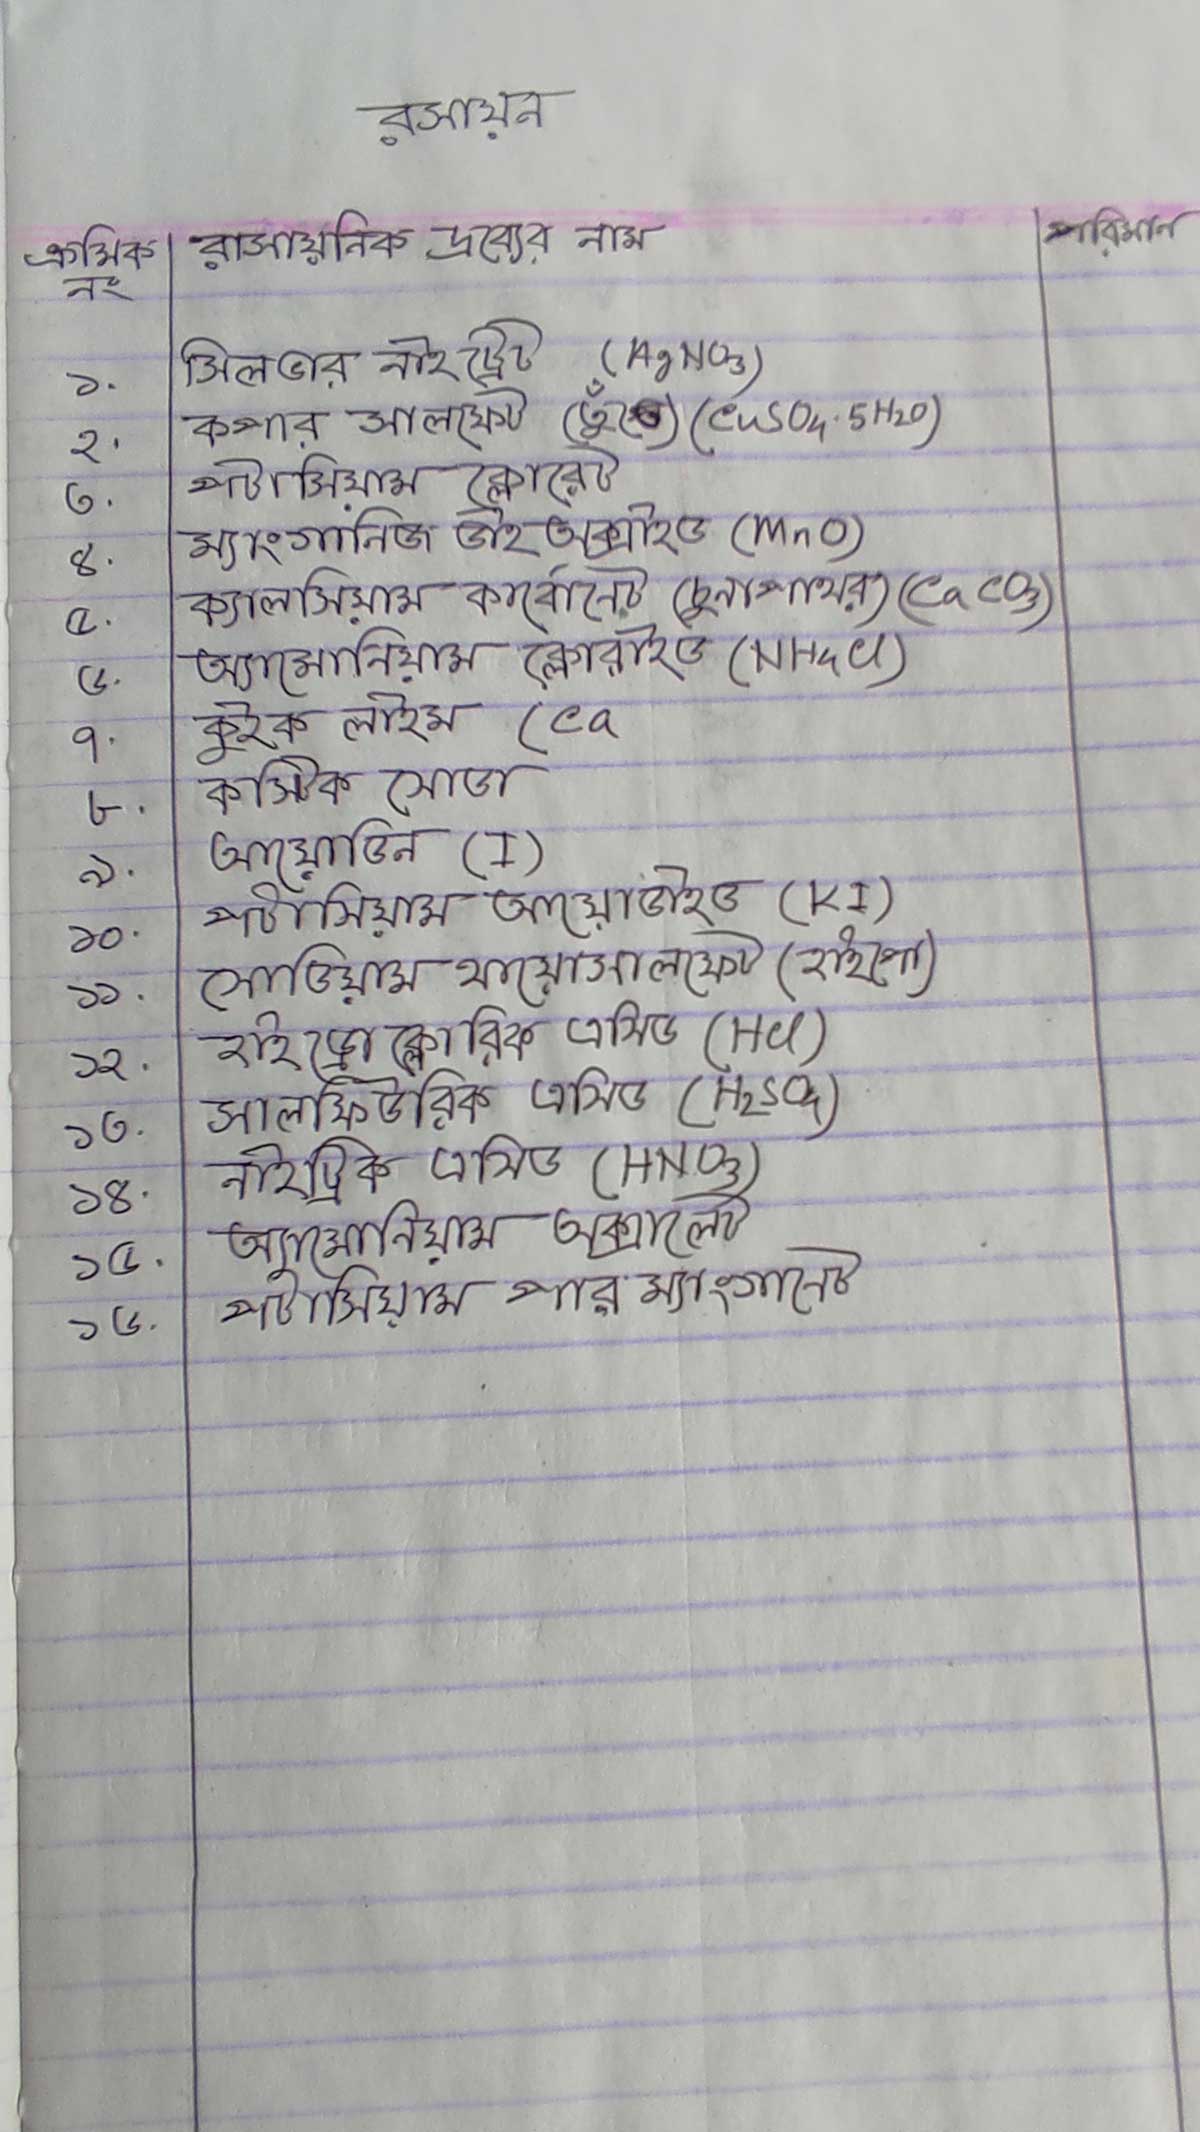 রসায়ন
ক্রমিক নং রাসায়নিক দ্রব্যের নাম পরিমান
১. সিলভার নাইট্রেট (AgNO3)
২. কপার সালফেট (তুঁতে) (CuSO4·5H2O)
৩. পটাসিয়াম ক্লোরেট
৪. ম্যাংগানিজ ডাই অক্সাইড (MnO)
৫. ক্যালসিয়াম কার্বোনেট (চুনাপাথর) (CaCO3)
৬. অ্যামোনিয়াম ক্লোরাইড (NH4Cl)
৭. কুইক লাইম (Ca
৮. কস্টিক সোডা
৯. আয়োডিন (I)
১০. পটাসিয়াম আয়োডাইড (KI)
১১. সোডিয়াম থায়োসালফেট (হাইপো)
১২. হাইড্রোক্লোরিক এসিড (HCl)
১৩. সালফিউরিক এসিড (H2SO4)
১৪. নাইট্রিক এসিড (HNO3)
১৫. অ্যামোনিয়াম অক্সালেট
১৬. পটাসিয়াম পার ম্যাংগানেট